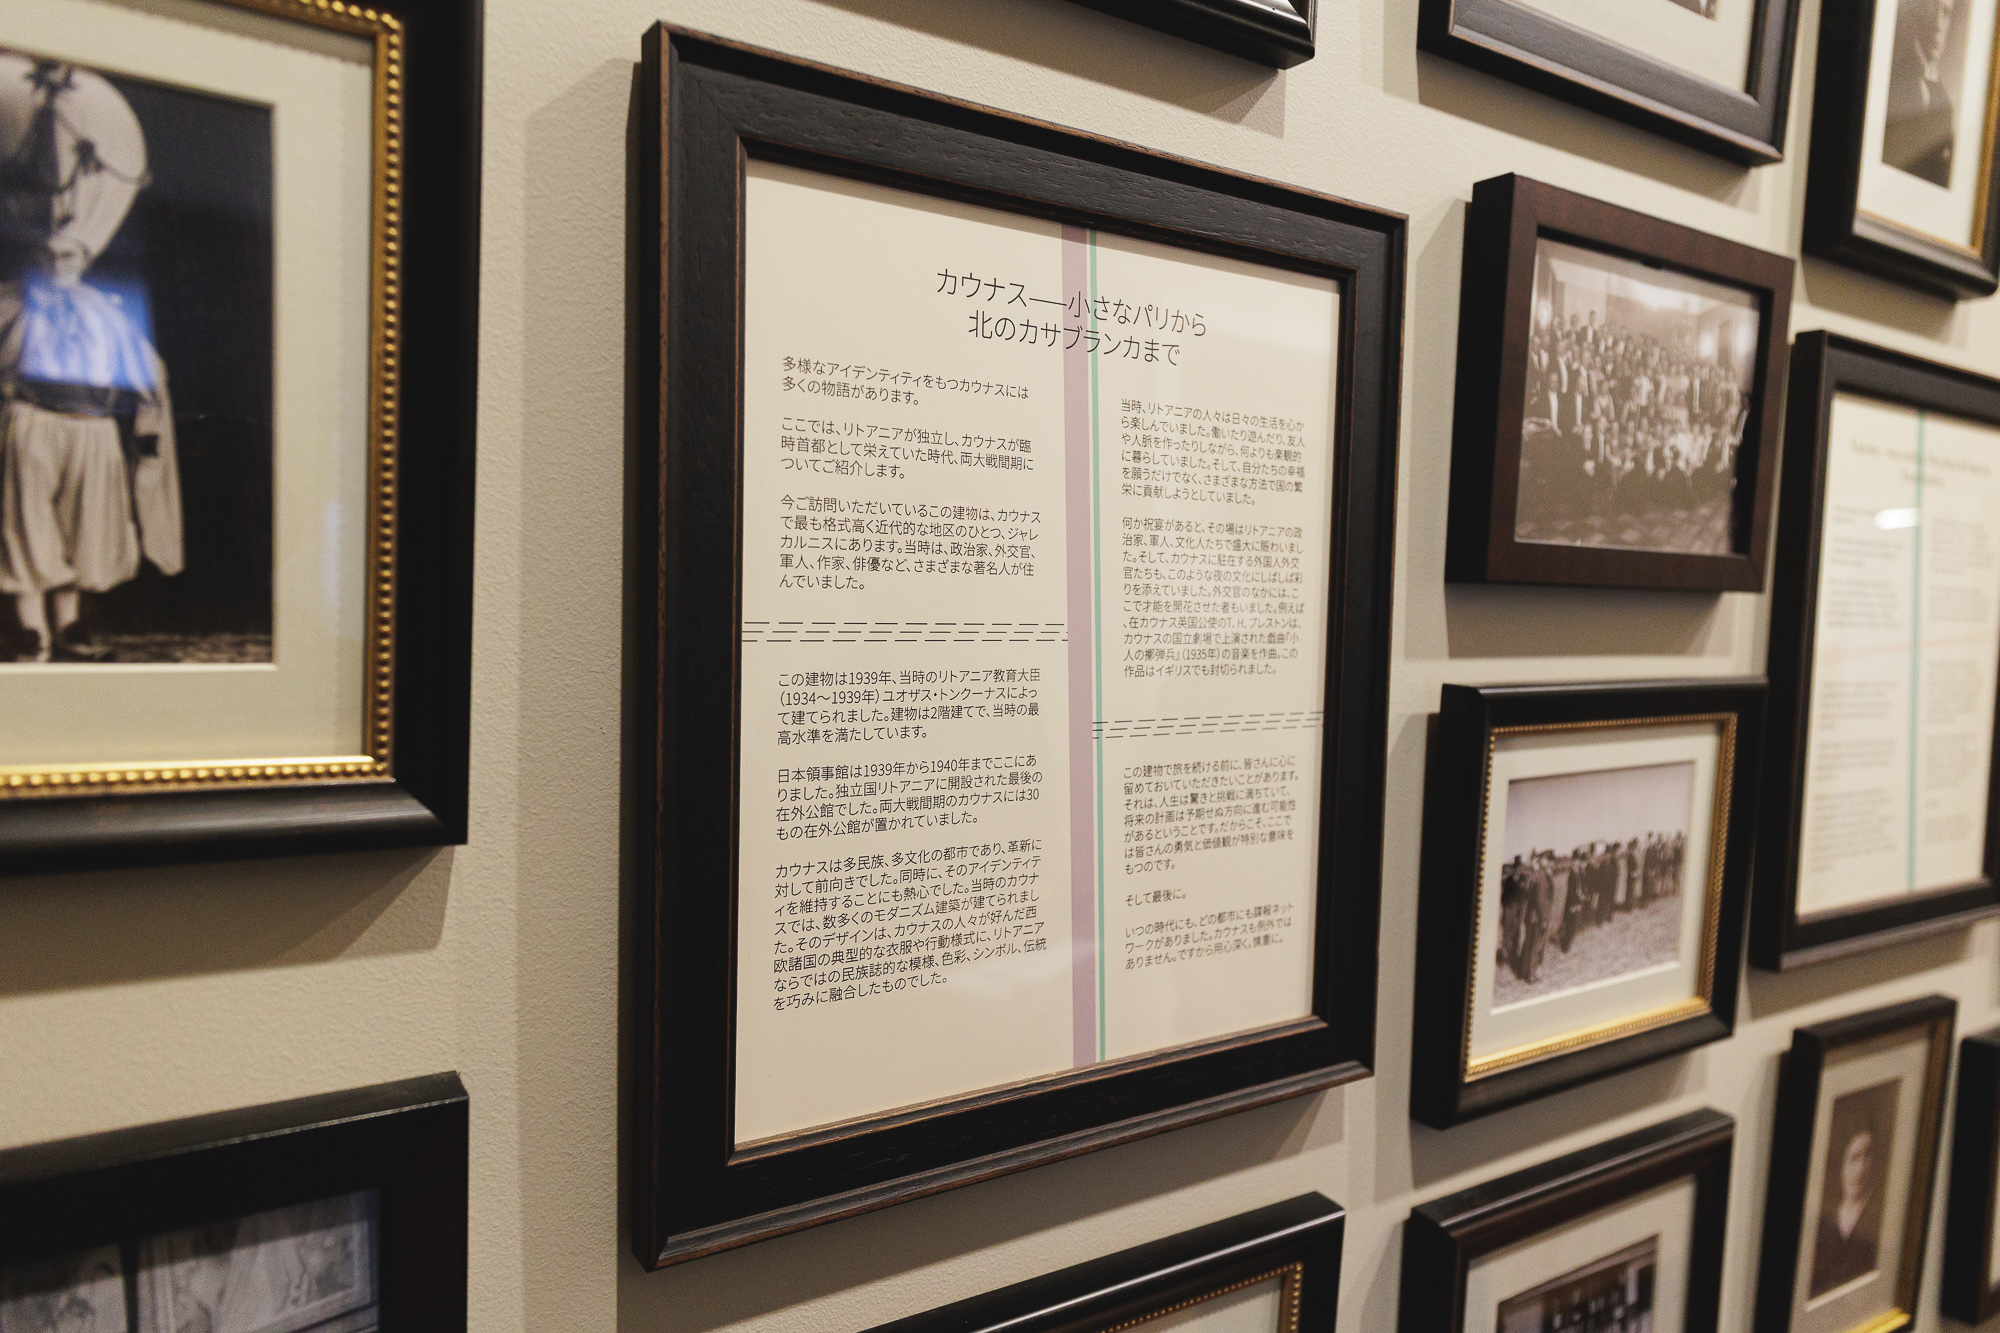 カウナス――小さなパリから
北のカサブランカまで
多様なアイデンティティをもつカウナスには
多くの物語があります。
ここでは、リトアニアが独立し、カウナスが臨
時首都として栄えていた時代、両大戦間期に
ついてご紹介します。
今ご訪問いただいているこの建物は、カウナス
で最も格式高く近代的な地区のひとつ、ジャレ
カルニスにあります。当時は、政治家、外交官、
軍人、作家、俳優など、さまざまな著名人が住
んでいました。
この建物は1939年、当時のリトアニア教育大臣
（1934～1939年）ユオザス・トンクーナスによっ
て建てられました。建物は2階建てで、当時の最
高水準を満たしています。
日本領事館は1939年から1940年までここにあ
りました。独立国リトアニアに開設された最後の
在外公館でした。両大戦間期のカウナスには30
もの在外公館が置かれていました。
カウナスは多民族、多文化の都市であり、革新に
対して前向きでした。同時に、そのアイデンティテ
ィを維持することにも熱心でした。当時のカウナ
スでは、数多くのモダニズム建築が建てられまし
た。そのデザインは、カウナスの人々が好んだ西
欧諸国の典型的な衣服や行動様式に、リトアニア
ならではの民族誌的な模様、色彩、シンボル、伝統
を巧みに融合したものでした。
当時、リトアニアの人々は日々の生活を心か
ら楽しんでいました。働いたり遊んだり、友人
や人脈を作ったりしながら、何よりも楽観的
に暮らしていました。そして、自分たちの幸福
を願うだけでなく、さまざまな方法で国の繁
栄に貢献しようとしていました。
何か祝宴があると、その場はリトアニアの政
治家、軍人、文化人たちで盛大に賑わいまし
た。そして、カウナスに駐在する外国人外交
官たちも、このような夜の文化にしばしば彩
りを添えていました。外交官のなかには、こ
こで才能を開花させた者もいました。例えば
、在カウナス英国公使のT. H. プレストンは、
カウナスの国立劇場で上演された戯曲『小
人の擲弾兵』（1935年）の音楽を作曲。この
作品はイギリスでも封切られました。
この建物で旅を続ける前に、皆さんに心に
留めておいていただきたいことがあります。
それは、人生は驚きと挑戦に満ちていて、
将来の計画は予期せぬ方向に進む可能性
があるということです。だからこそ、ここで
は皆さんの勇気と価値観が特別な意味を
もつのです。
そして最後に。
いつの時代にも、どの都市にも諜報ネット
ワークがありました。カウナスも例外では
ありません。ですから用心深く、慎重に。